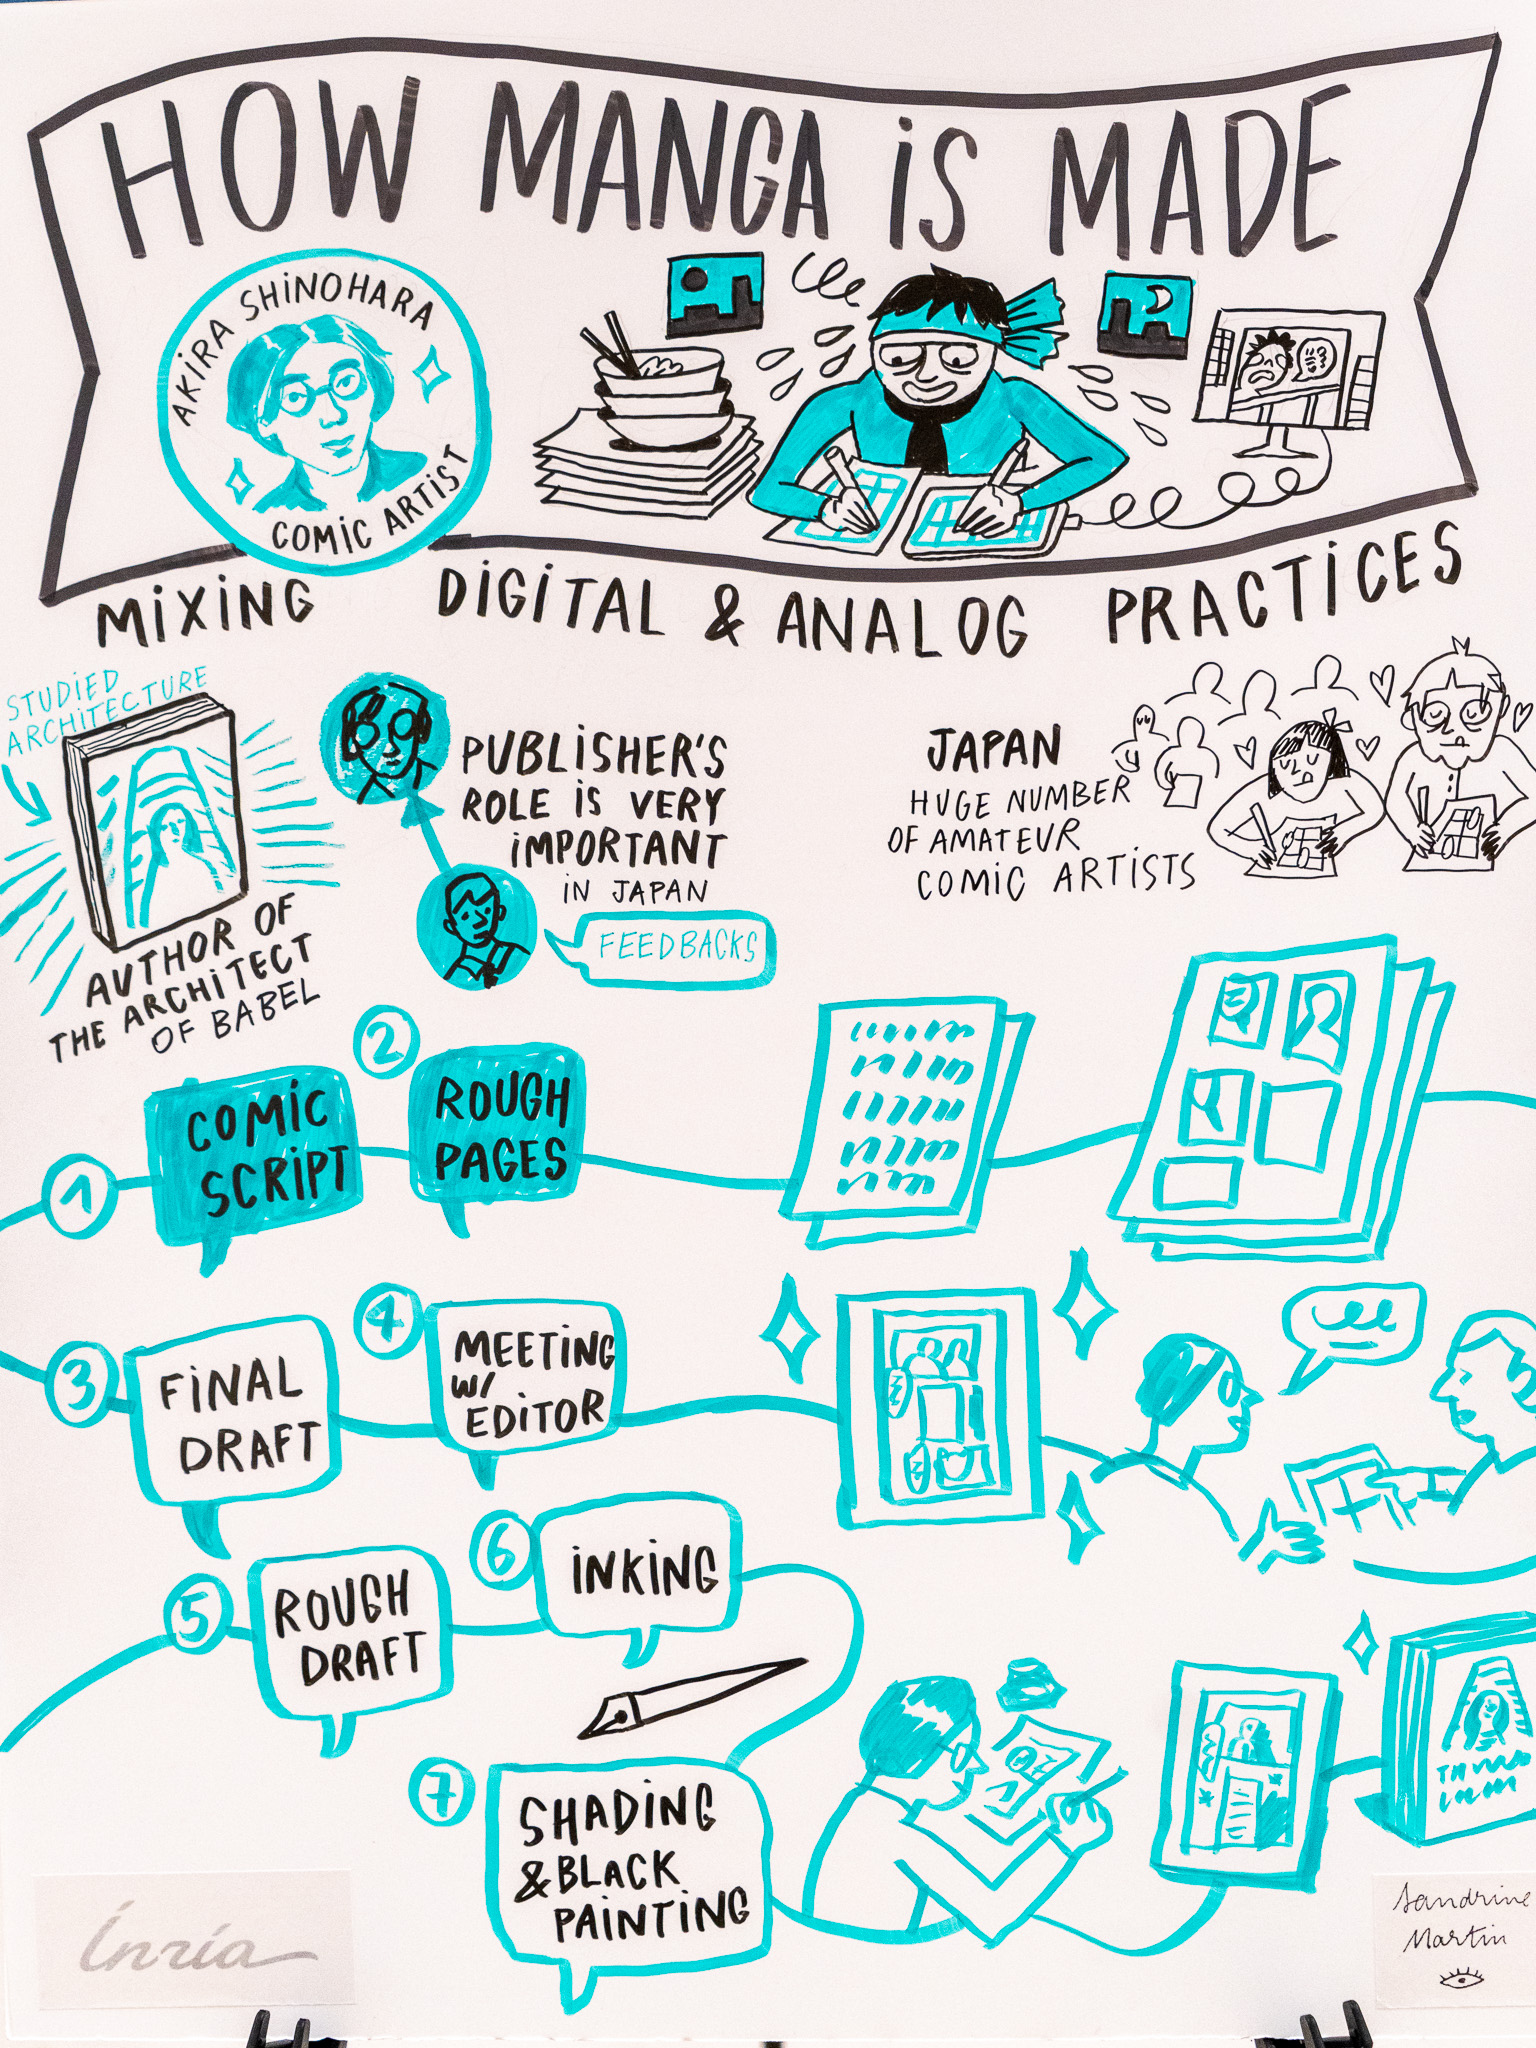 HOW MANGA iS MADE
AKiRA SHiNOHARA
COMiC ARTiST
MiXiNG DiGiTAL & ANALOG PRACTiCES
STUDiED
ARCHiTECTURE
AUTHOR OF
THE ARCHiTECT
OF BABEL
PUBLiSHER'S
ROLE iS VERY
iMPORTANT
iN JAPAN
FEEDBACKS
JAPAN
HUGE NUMBER
OF AMATEUR
COMiC ARTiSTS
1
COMiC
SCRiPT
2
ROUGH
PAGES
3
FiNAL
DRAFT
4
MEETiNG
W/
EDiTOR
5
ROUGH
DRAFT
6
iNKiNG
7
SHADiNG
& BLACK
PAiNTiNG
Inria
Sandrine
Martin